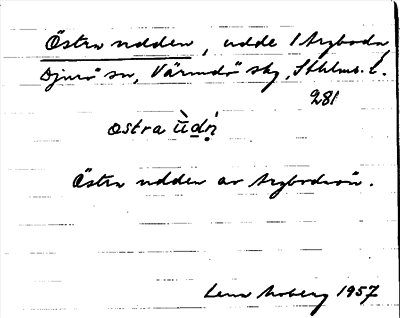 Östra udden, udde i Myboda,
Djurö sn, Värmdö skg, Sthlms l.
281
ostra ùdṇ
Östra udden av Mybodaön.
Lena Moberg 1957